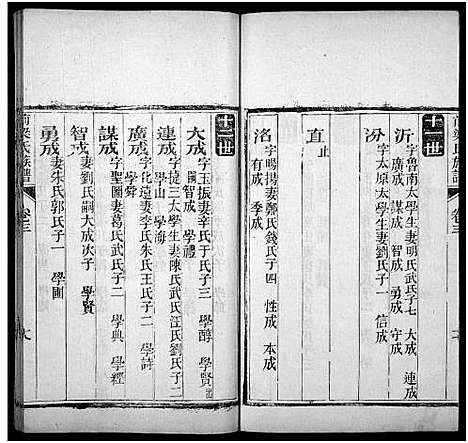 十一世
沂
字魯南太學生妻明氏武氏子七 大成 連成
廣成 謀成 智成 勇成 守成
汾
字太原太學生妻劉氏子一 信成
直
止
洺
字暘揚妻鄭氏錢氏子四 性成 本成
有成 季成
卷三
十二世
大成
字玉振妻辛氏于氏子三 學醇 學賢
智成 學禮
連成
字捷三太學生妻陳氏武氏汪氏劉氏子二
學舜 學海
廣成
字化遠妻李氏朱氏王氏子二 學詩
謀成
字聖圖妻葛氏武氏子二 學典 學經
智成
妻劉氏嗣大成次子 學賢
勇成
妻朱氏郭氏子一 學圃
氏族譜
卷三